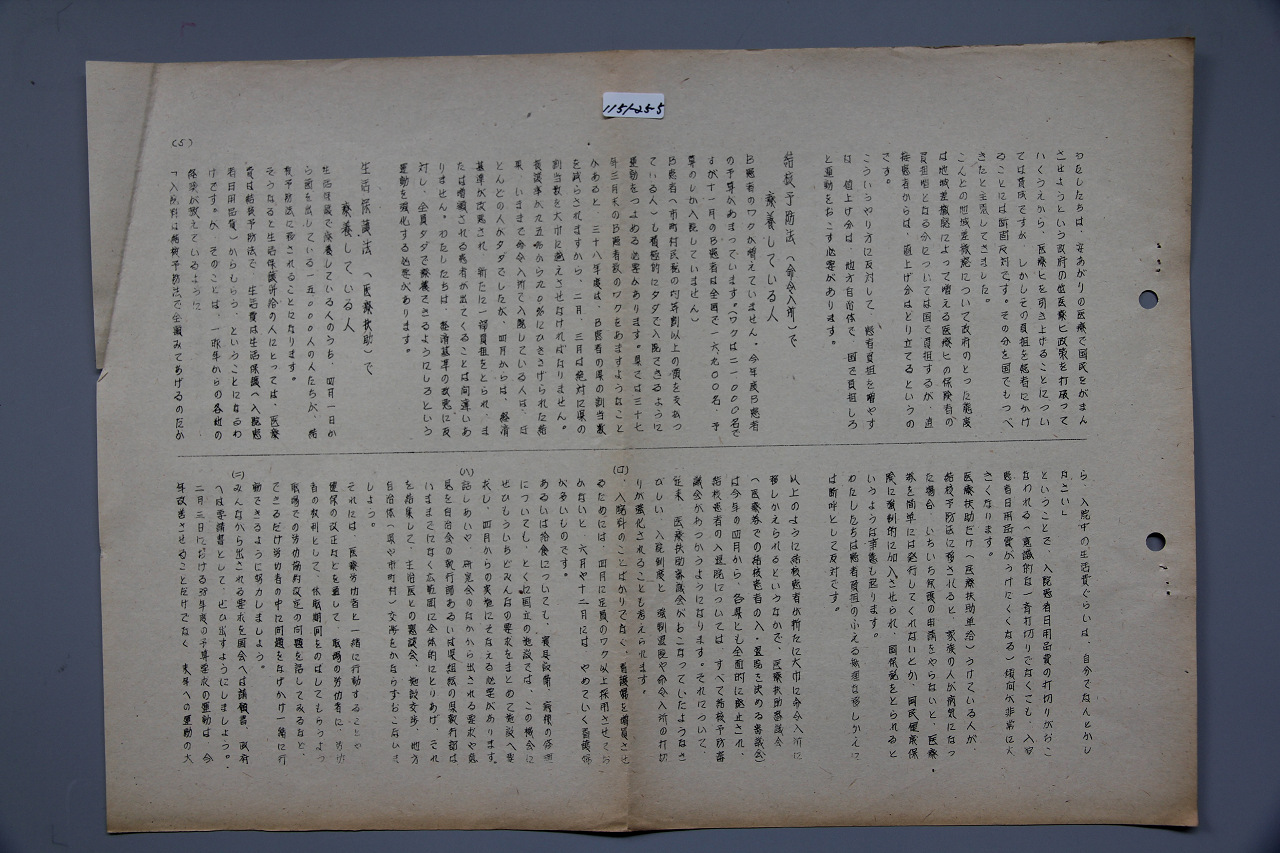 115-25-5
わたしたちは、安あがりの医療で国民をがまん
させようという政府の低医療ヒ政策を打破って
いくうえから、医療ヒを引き上げることについ
ては賛成ですが、しかしその負担を患者にかけ
ることには断固反対です。その分を国でもつべ
きだと主張してきました。
こんどの地域差撤廃について政府のとった態度
は地域差撤廃によって増える医療ヒの保険者の
負担増となる分については国で負担するが、直
接患者からは、値上げ分はどり立てるというの
です。
こういうやり方に反対して、患者負担を増やす
な、値上げ分は、地方自治体で、国で負担しろ
と運動をおこす必要があります。
結核予防法(命令入所)で
療養している人
B患者のワクが増えていません。今年度B患者
の予算があまっています。(ワクは二一〇〇〇名で
すが十一月のB患者は全国で一六九〇〇名、予
算のしか入院していません)
B患者へ市町村民税の均等割以上の質を支払っ
ている人)し積極的にタダで入院できるように
運動をつよめる必要があります。県では三十七
年三月末のB患者数のワクをあますようなこと
があると、三十八年度は、B患者の県の割当数
を減らされますから、二月、三月は絶対に県の
割当数を大巾に超えさせなければなりません。
後護率が九五%から九〇%にひきさげられた結
果、いままで命令入所で入院している人は、ほ
とんどの人がタダでしたが、四月からは、経済
基準が改悪され、新たに一部負担をとられ、ま
たは増額される患者が出てくることは間違いあ
りません。わたしたちは、経済基準の改悪に反
対し、全員タダで療養できるようにしろという
運動を強化する必要があります。
生活保護法(医療扶助)で
療養している人
生活保護で療養している人のうち、四月一日か
ら菌を出している一五〇〇〇人の人たちが、結
核予防法に移されることになります。
そうなると生活保護所帯の人にとっては、医療
費は結核予防法で、生活費は生活保護へ入院患
者日用品費)からもらう、ということになるわ
けです。が、そのことは、一昨年からの各地の
経験が教えているように
「入院料は結核予防法で全面みてあげるのだか
(5)
ら、入院中の生活費ぐらいは、自分でなんとかし
なさい」
ということで、入院患者日用品費の打切りがおこ
なわれるへ意識的な一斉打切りでなくても、入院
患者日用品費がうけにくくなる)傾向が非常に大
きくなります。
医療扶助だけへ医療扶助単給)うけている人が、
結核予防法に移されると、家族の人が病気になっ
た場合、いちいち保護の申請をやらないと、医療
券を簡単には発行してくれないとか、国民健康保
険に強制的に加入させられ、国保税をとられると
いうような事態も起ります。
わたしたちは患者負担のふえる無理な移しかえに
は断呼として反対です。
以上のように結核患者が新たに大巾に命令入所に
移しかえられるというなかで、医療扶助審議会
へ医療券での結核患者の入・退院を決める審議会)
は今年の四月から、各県とも全面的に廃止され、
結核患者の入退院については、すべて結核予防審
議会があつかうようになります。それについて、
従来、医療扶助審議会がおこなっていたようなき
びしい、入院制度と、強制退院や命令入所の打切
りが強化されることも考えられます。
(ロ)、入院料のことばかりでなく、看護婦を増員させ
るためには、四月に定員のワク以上採用させてお
かないと、六月や十二月には、やめていく看護婦
が多いものです。
あるいは給食についても、寝具設備、病棟の修理
についても、とくに国立の施設では、この機会に
ぜひもういちどみんなの要求をまとめて施設へ要
求し、四月からの実施にそなえる必要があります。
(ハ)話しあいや、研究会のなかから出される要求や意
見を自治会の執行部あるいは県組織の県執行部は
いままでになく広範囲に全体的にとりあげ、それ
を結集して、主治医との懇談会、施設交渉、地方
自治体(県や市町村)交渉をかならずおこないま
しょう。
それには、医療労働者と一緒に行動することや
健保の改正などを通して、職場の労働者に、労働
者の权利として、休職期間をのばしてもらうよう
職場での労働協約改定の問題を話してみるなど、
できるだけ労働者の中に問題をなげかけ一緒に行
動できるように努力しましょう。
(ニ)みんなから出される要求を国会へは請願書、政府
へは要請書として、ぜひ出すようにしましょう。
二月三日における38年度の予算要求の運動は、今
年改善させることだけでなく、来年への運動の大